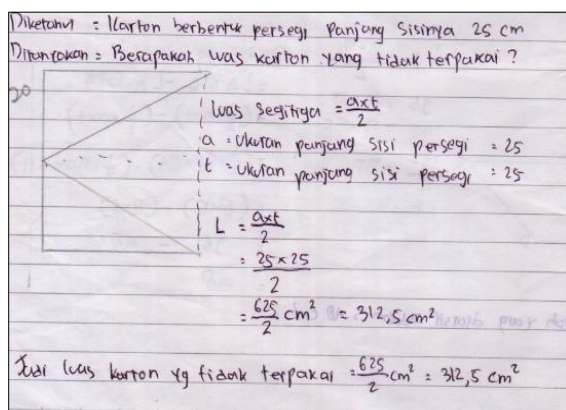 Diketahui : Karton berbentuk persegi panjang sisinya 25 cm
Ditanyakan = Berapakah luas karton yang tidak terpakai ?
20
Luas segitiga = axt
2
a = Ukuran panjang sisi persegi = 25
t = Ukuran panjang sisi persegi = 25
L = axt
2
= 25 x 25
2
= 625 cm² = 312,5 cm²
2
Jadi luas karton yg tidak terpakai = 625 cm² = 312,5 cm²
2